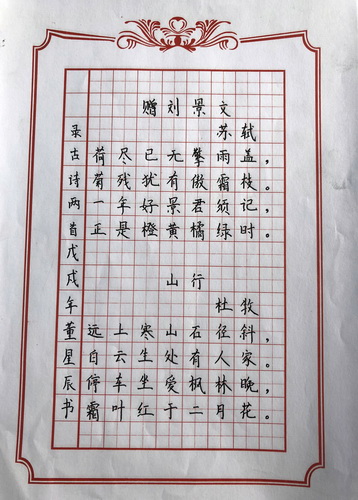 赠刘景文
苏轼
荷尽已无擎雨盖，
菊残犹有傲霜枝。
一年好景君须记，
正是橙黄橘绿时。
山行
杜牧
远上寒山石径斜，
白云生处有人家。
停车坐爱枫林晚，
霜叶红于二月花。
录古诗两首戊戌年董星辰书